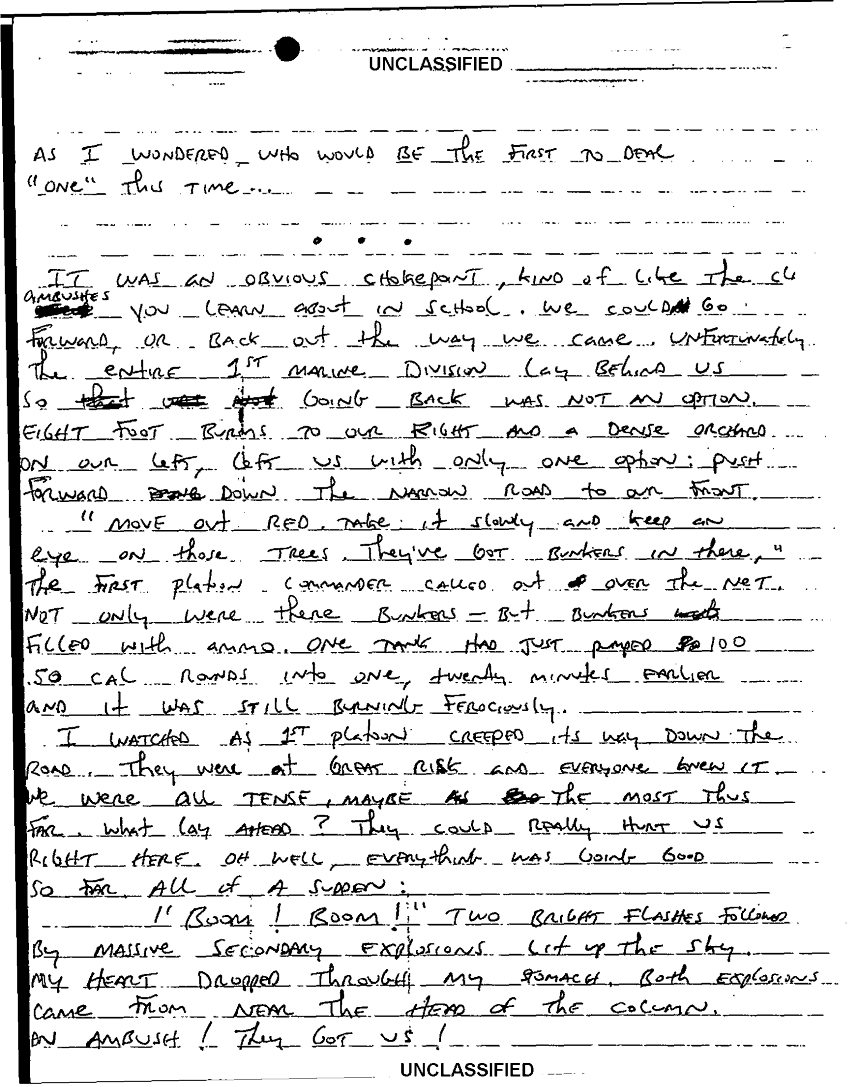 UNCLASSIFIED
AS I WONDERED WHO WOULD BE THE FIRST TO DEAL
"ONE" THIS TIME...
• • •
IT WAS AN OBVIOUS CHOKEPOINT, KIND OF LIKE THE
AMBUSHES YOU LEARN ABOUT IN SCHOOL. WE COULD GO
FORWARD, OR BACK OUT THE WAY WE CAME. UNFORTUNATELY
THE ENTIRE 1ST MARINE DIVISION LAY BEHIND US
SO GOING BACK WAS NOT AN OPTION.
EIGHT FOOT BURMS TO OUR RIGHT AND A DENSE ORCHARD
ON OUR LEFT, LEFT US WITH ONLY ONE OPTION: PUSH
FORWARD DOWN THE NARROW ROAD TO OUR FRONT.
"MOVE OUT RED. TAKE IT SLOWLY AND KEEP AN
EYE ON THOSE TREES. THEY'VE GOT BUNKERS IN THERE,"
THE FIRST PLATOON COMMANDER CALLED OUT OVER THE NET.
NOT ONLY WERE THERE BUNKERS - BUT BUNKERS
FILLED WITH AMMO. ONE TANK HAD JUST PUMPED 100
.50 CAL ROUNDS INTO ONE, TWENTY MINUTES EARLIER
AND IT WAS STILL BURNING FEROCIOUSLY.
I WATCHED AS 1ST PLATOON CREEPED ITS WAY DOWN THE
ROAD. THEY WERE AT GREAT RISK AND EVERYONE KNEW IT.
WE WERE ALL TENSE, MAYBE THE MOST THUS
FAR. WHAT LAY AHEAD? THEY COULD REALLY HURT US
RIGHT HERE. OH WELL, EVERYTHING WAS GOING GOOD
SO FAR. ALL OF A SUDDEN:
"BOOM! BOOM!" TWO BRIGHT FLASHES FOLLOWED
BY MASSIVE SECONDARY EXPLOSIONS LIT UP THE SKY.
MY HEART DROPPED THROUGH MY STOMACH. BOTH EXPLOSIONS
CAME FROM NEAR THE HEAD OF THE COLUMN.
AN AMBUSH! THEY GOT US!
UNCLASSIFIED